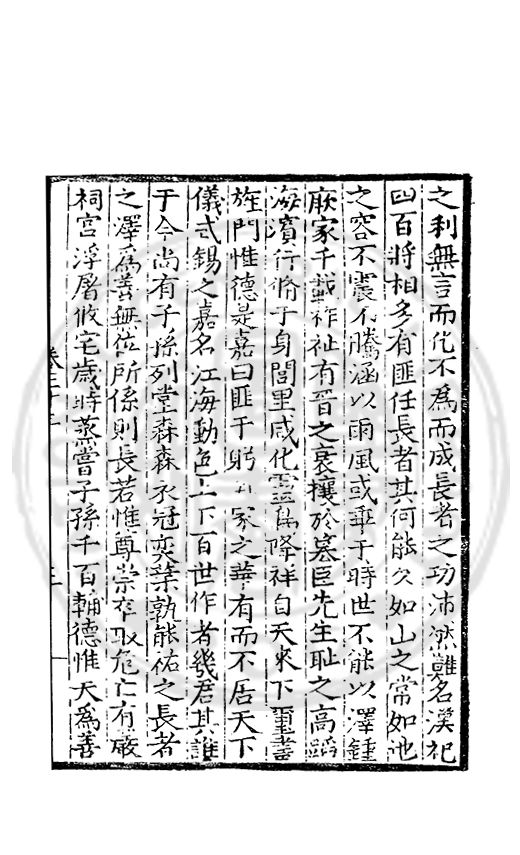 之利無言而化不爲而成長者之功沛然難名漢祀
四百將相多有匪任長者其何能久如山之常如池
之容不震不騰涵以雨風或乖于時世不能以澤鍾
厥家千載祚祉有晋之衰攘於墓臣先生耻之高蹈
海濱行脩于身閭里咸化靈爲降祥自天來下璽書
旌門惟德是嘉曰匪于躬 家之華有而不居天下
儀式錫之嘉名江海動色上下百世作者幾君其誰
于今尚有子孫列堂森森衣冠奕葉孰能祐之長者
之澤爲善無位所係則長若惟尊崇 取危亡有嚴
祠宫浮屠攸宅歲時蒸嘗子孫千百輔德惟天爲善
卷三十三
三